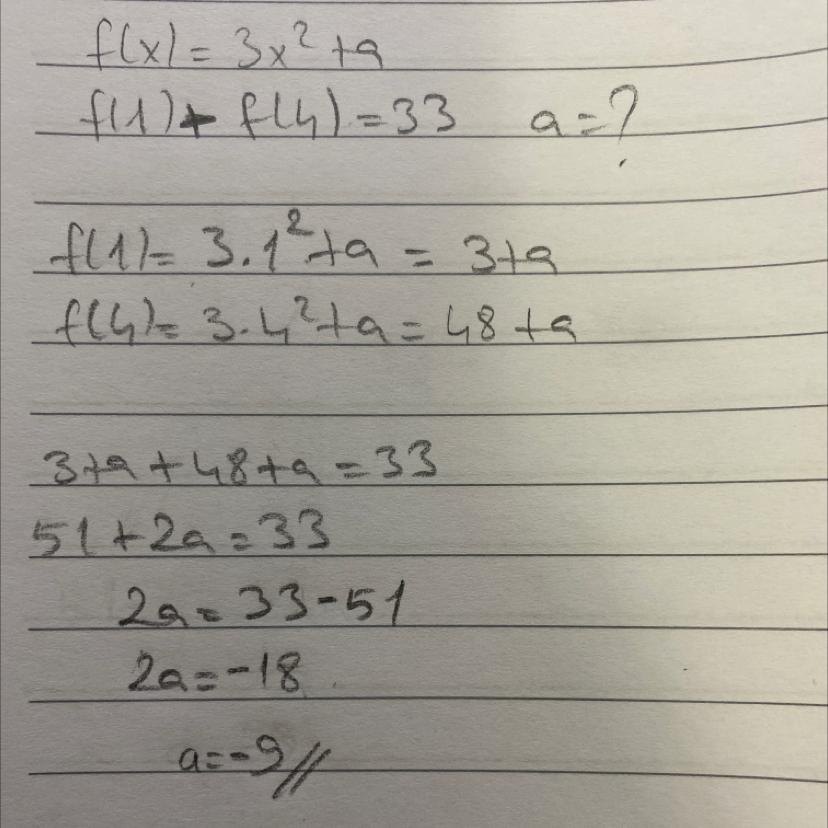 f(x) = 3x² + a
f(1) + f(4) = 33 a = ?
f(1) = 3.1² + a = 3 + a
f(4) = 3.4² + a = 48 + a
3 + a + 48 + a = 33
51 + 2a = 33
2a = 33 - 51
2a = -18
a = -9//